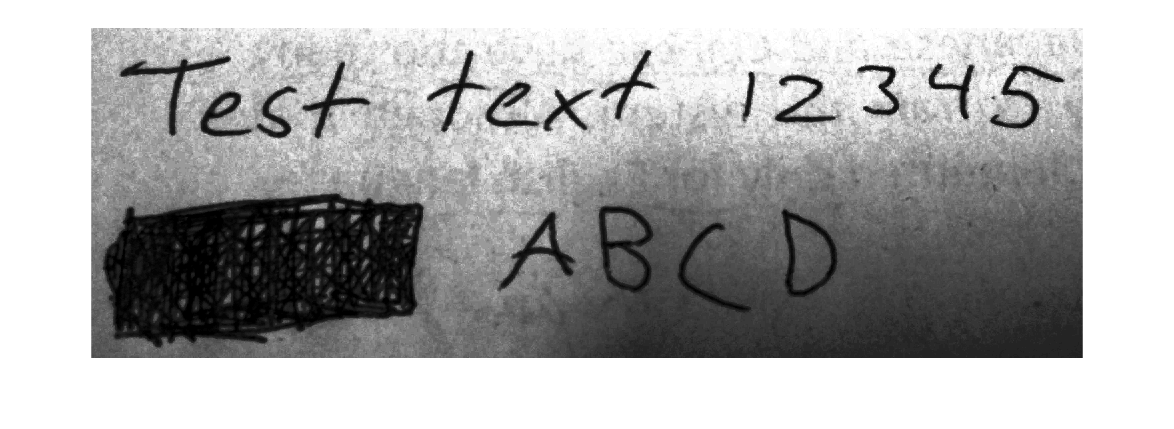 Test text 12345
ABCD